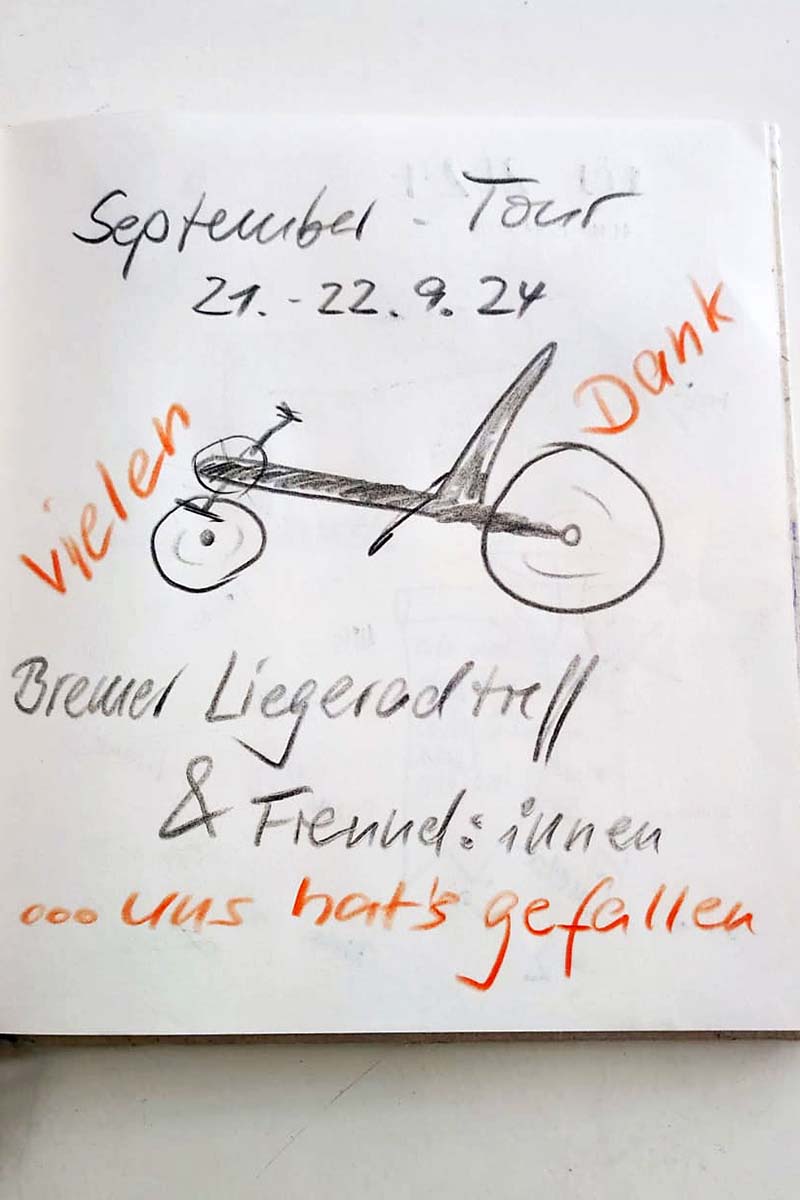 September - Tour
21. - 22. 9. 24
vielen Dank
Bremer Liegeradtreff
& Freund:innen
... uns hat's gefallen